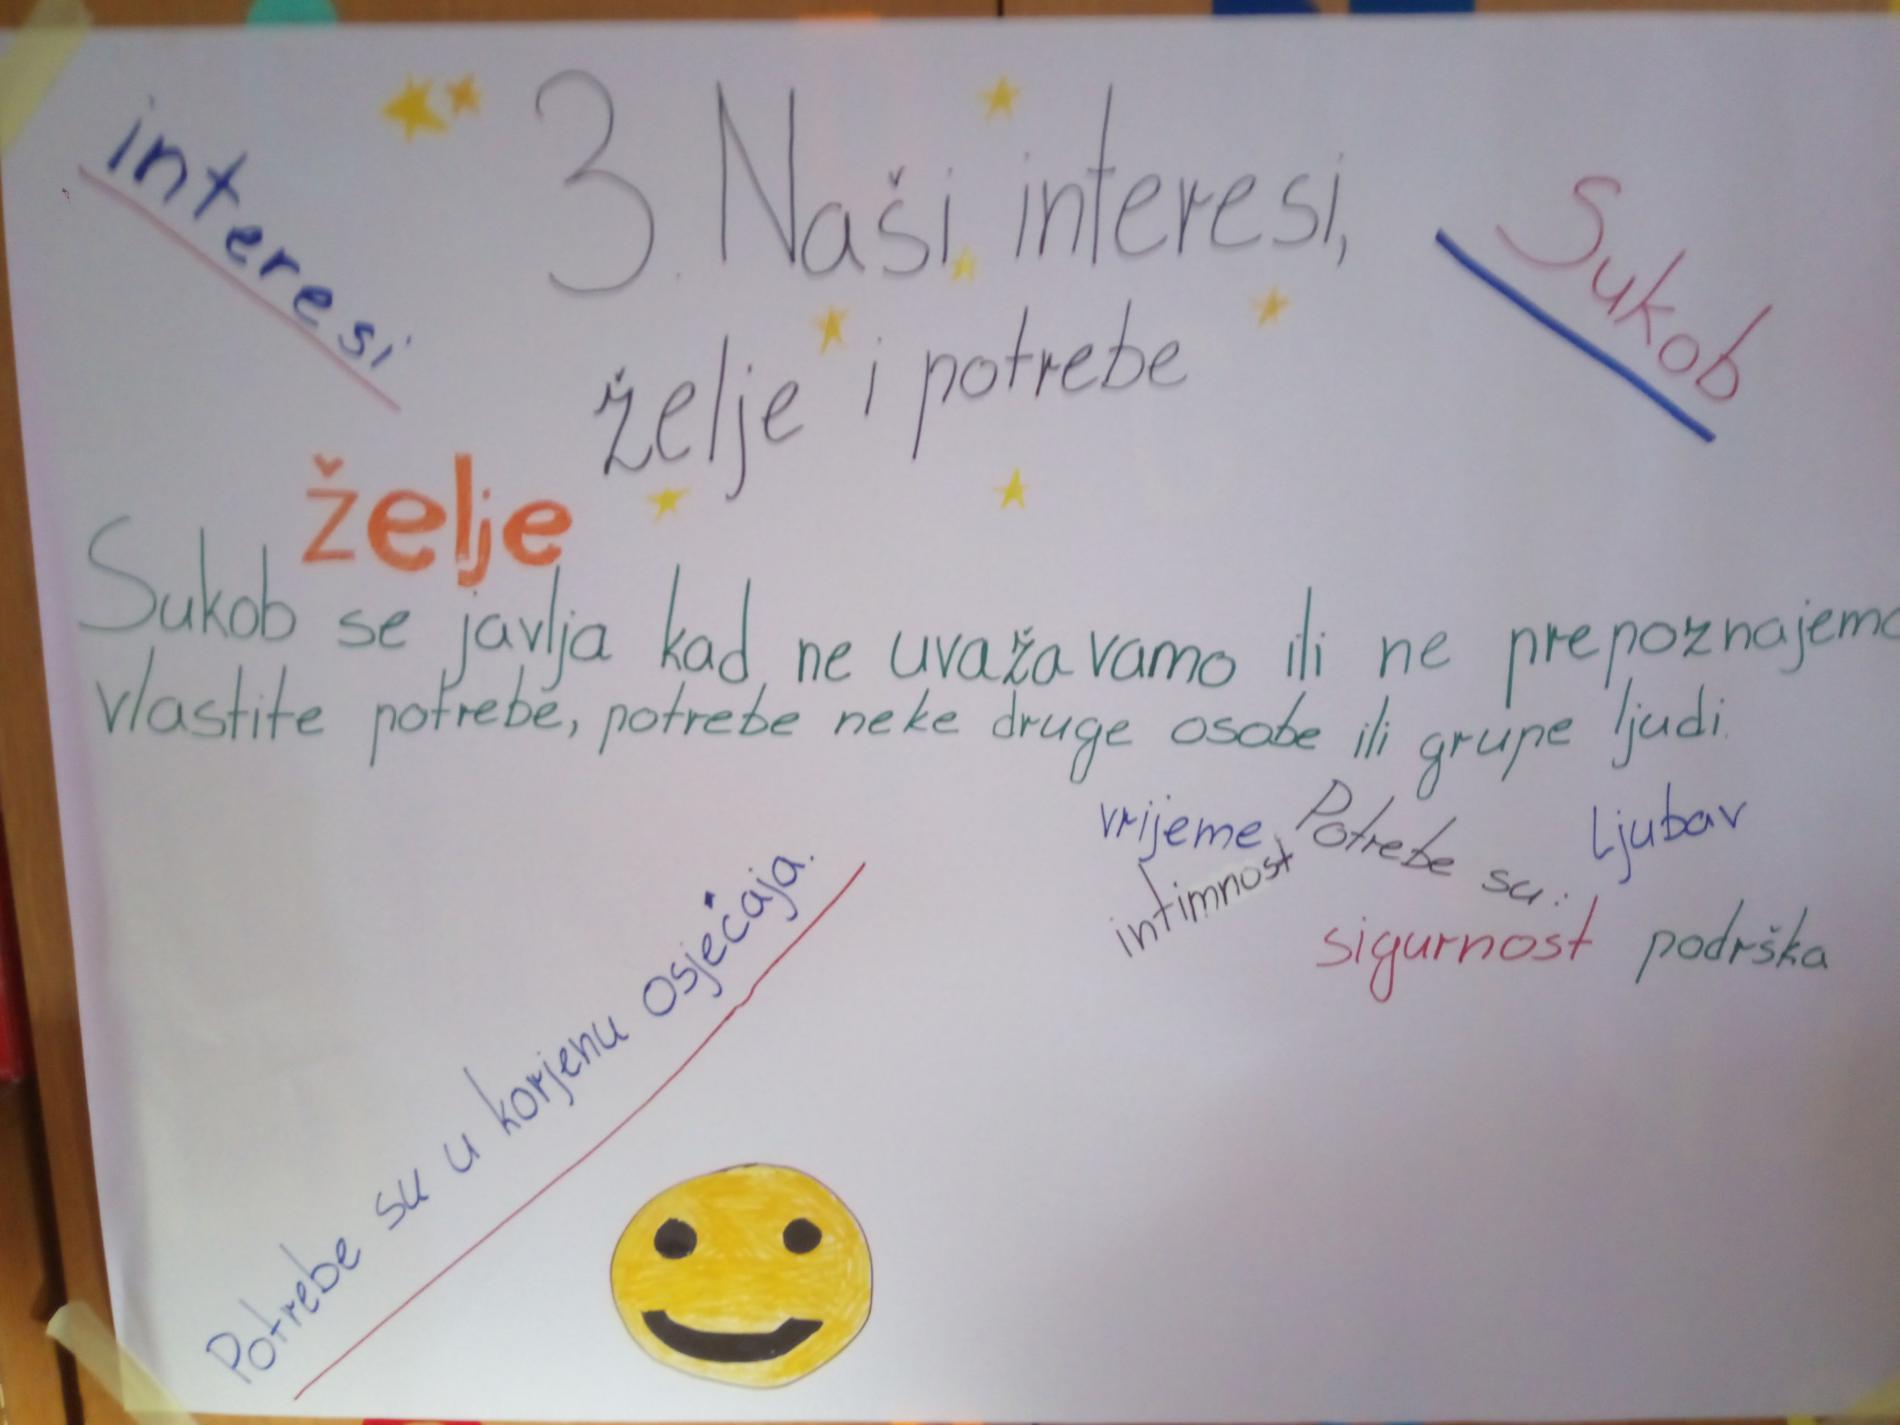 interesi
3. Naši interesi,
želje i potrebe
Sukob
želje
Sukob se javlja kad ne uvažavamo ili ne prepoznajemo
vlastite potrebe, potrebe neke druge osobe ili grupe ljudi.
Potrebe su:
vrijeme
Ljubav
intimnost
sigurnost
podrška
Potrebe su u korjenu osjećaja.